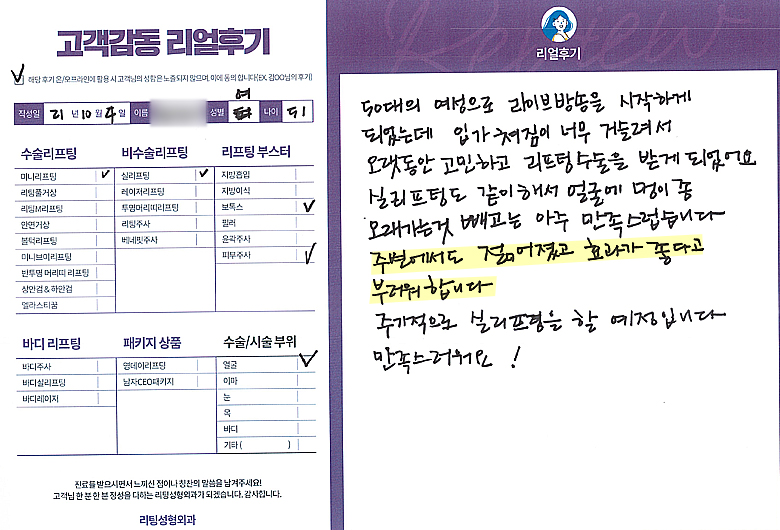 고객감동 리얼후기
해당 후기 온/오프라인에 활용 시 고객님의 성함은 노출되지 않으며, 이에 동의 합니다(EX. 김OO님의 후기)
작성일 21 년 10 월 4 일 이름 성별 여 나이 51
수술리프팅
미니리프팅
리팅풀거상
리팅M리프팅
안면거상
볼턱리프팅
미니브이리프팅
반투명 머리띠 리프팅
상안검 & 하안검
엘라스티꿈
비수술리프팅
실리프팅
레이저리프팅
투명머리띠리프팅
리팅주사
베네빗주사
리프팅 부스터
지방흡입
지방이식
보톡스
필러
윤곽주사
피부주사
바디 리프팅
바디주사
바디실리프팅
바디레이저
패키지 상품
영데이리프팅
남자CEO패키지
수술/시술 부위
얼굴
이마
눈
목
바디
기타 ( )
진료를 받으시면서 느끼신 점이나 칭찬의 말씀을 남겨주세요!
고객님 한 분 한 분 정성을 다하는 리팅성형외과가 되겠습니다. 감사합니다.
리팅성형외과
Review
리얼후기
50대의 여성으로 라이브방송을 시작하게
되었는데 입가 쳐짐이 너무 거슬려서
오랫동안 고민하고 리프팅수술을 받게 되었어요
실리프팅도 같이해서 얼굴에 멍이 좀
오래가는것 빼고는 아주 만족스럽습니다
주변에서도 젊어졌고 효과가 좋다고
부러워합니다
주기적으로 실리프팅을 할 예정입니다
만족스러워요 !